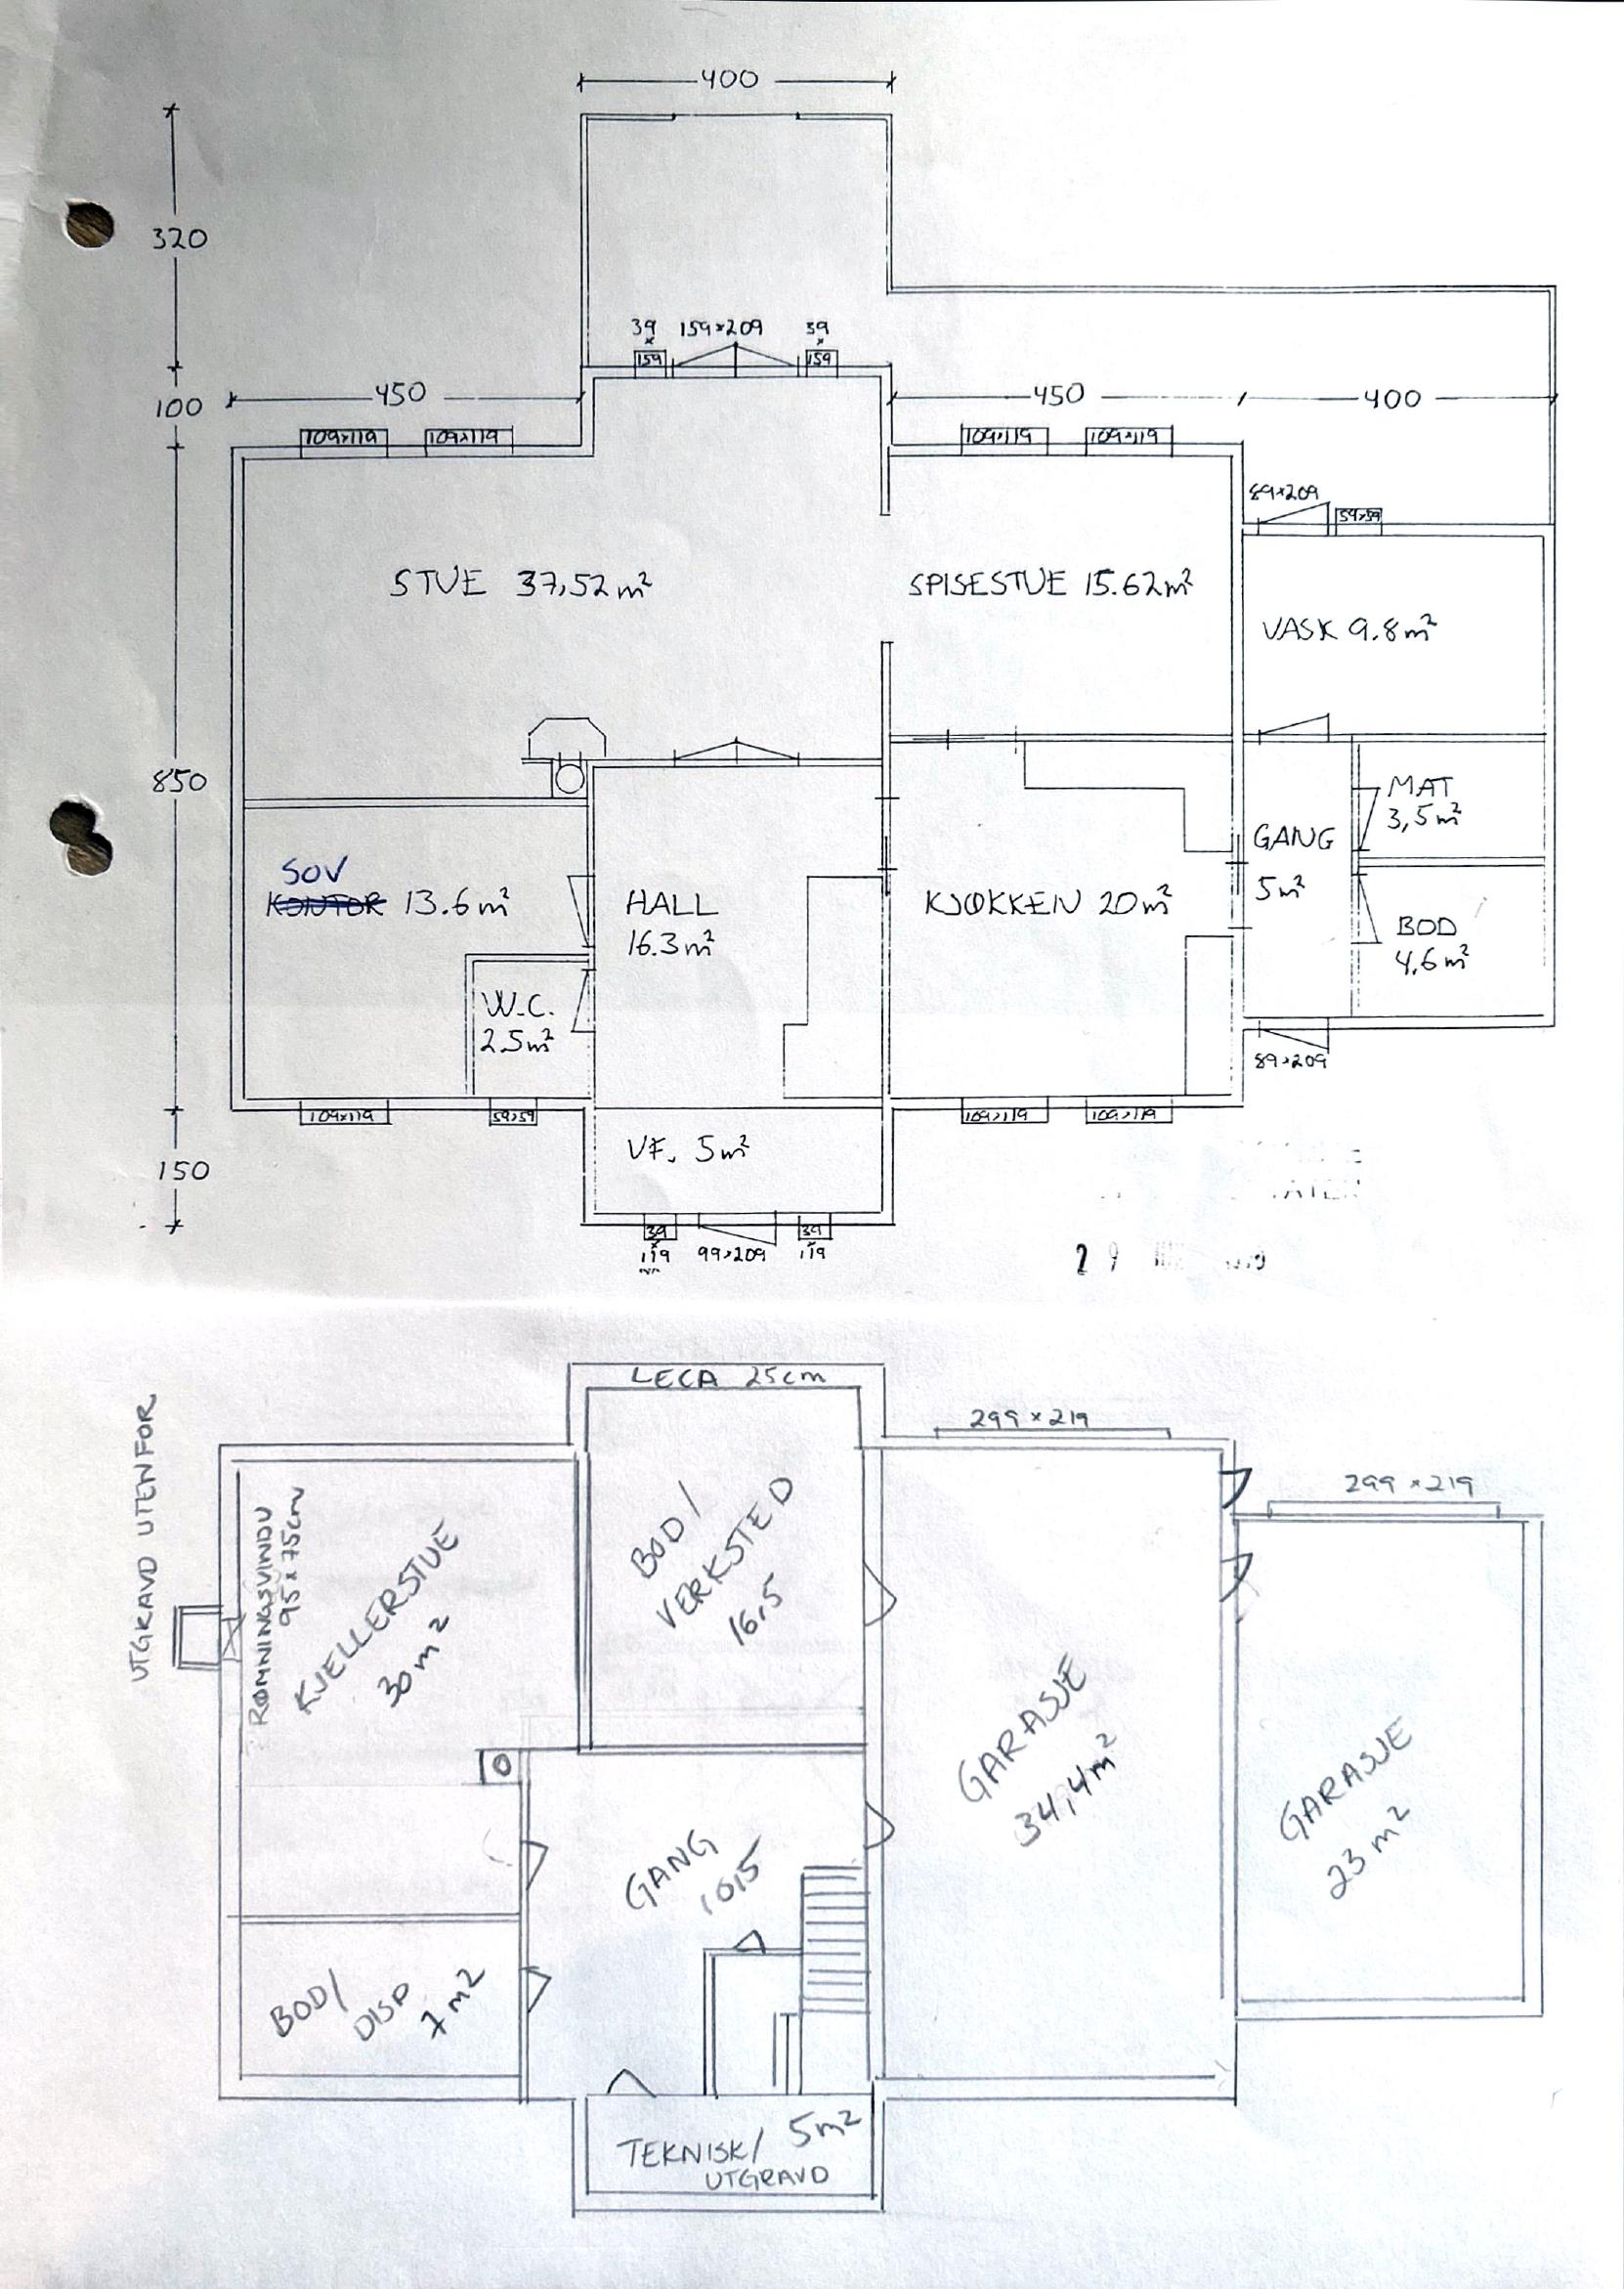 400
320
39
x
159
159×209
39
x
159
100
450
450
400
109×119
109×119
109×119
109×119
89×209
59×59
STUE 37,52 m²
SPISESTUE 15.62 m²
VASK 9.8 m²
850
MAT
3,5 m²
GANG
5 m²
SOV
KONTOR 13.6 m²
HALL
16.3 m²
KJØKKEN 20 m²
BOD
4,6 m²
W.C.
2.5 m²
89×209
109×119
59×59
109×119
109×119
VF. 5 m²
150
39
x
119
99×209
39
x
119
29
LECA 25cm
299 × 219
299 × 219
UTGRAVD UTENFOR
RØMNINGSVINDU
95 × 75cm
KJELLERSTUE
30 m²
BOD/
VERKSTED
16,5
GARASJE
34,4 m²
GARASJE
23 m²
GANG
10,5
BOD/
DISP
7 m2
TEKNISK/ 5m²
UTGRAVD